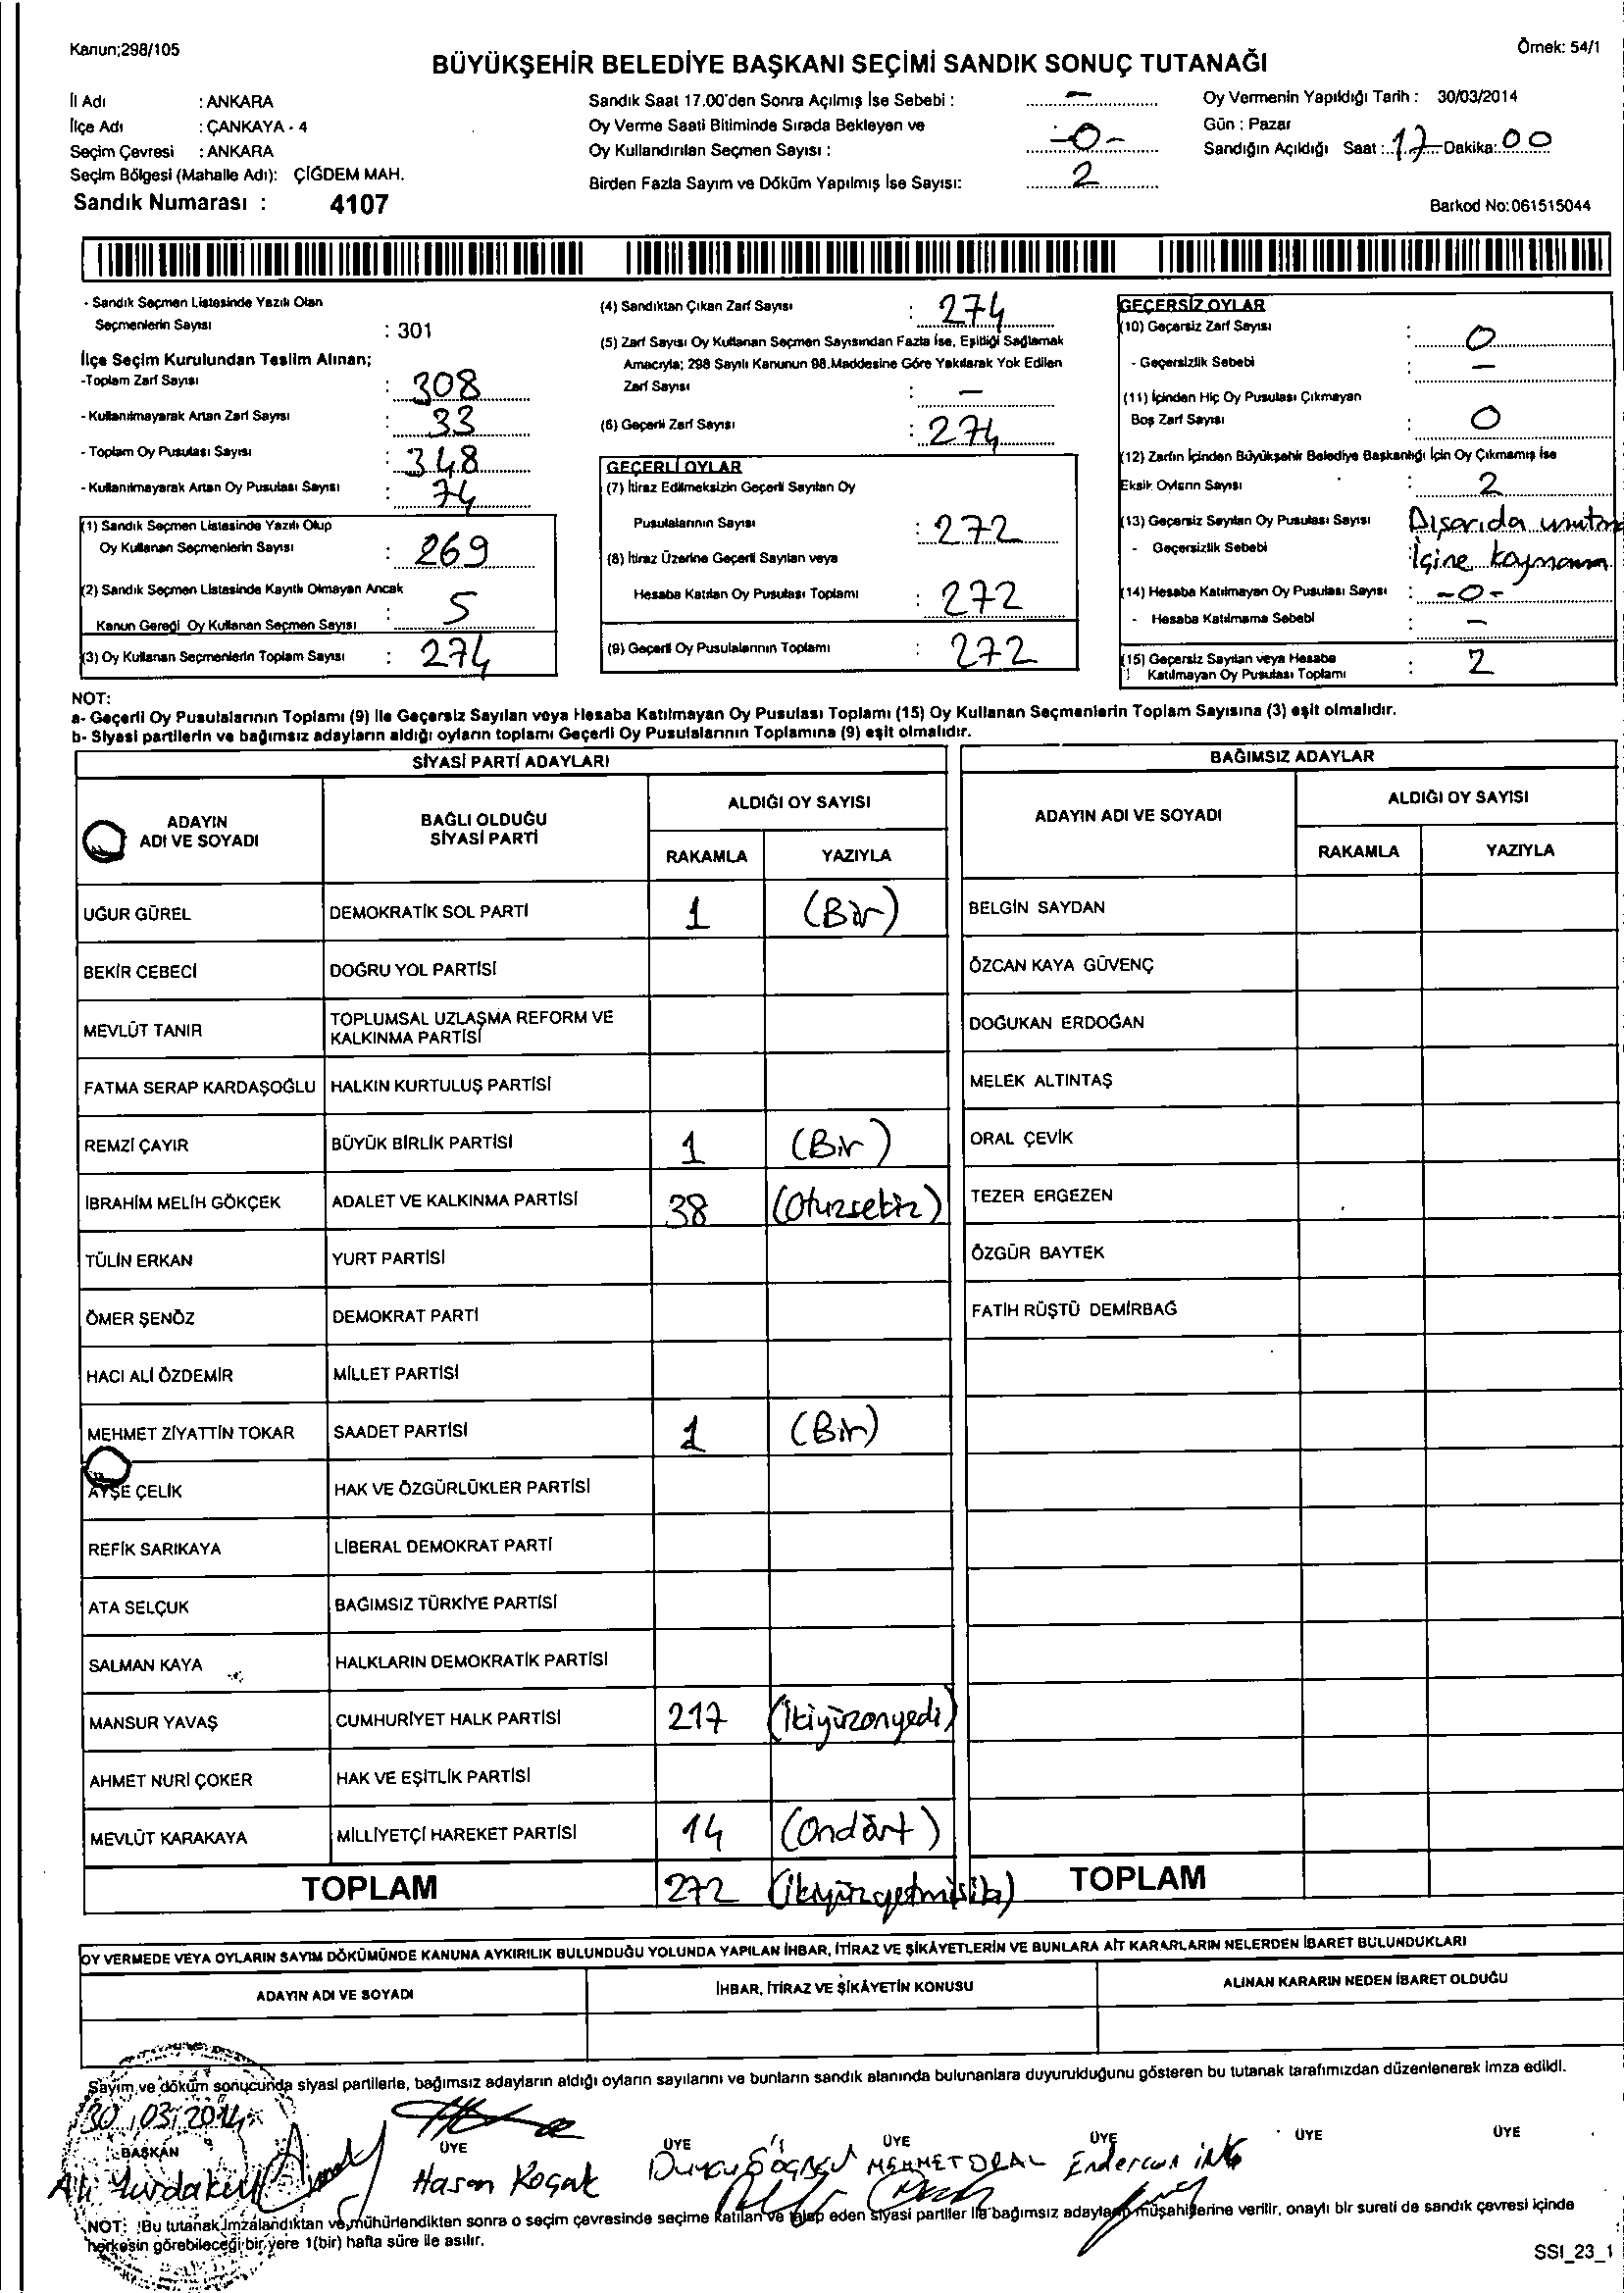 Kanun;298/105
Örnek: 54/1
BÜYÜKŞEHİR BELEDİYE BAŞKANI SEÇİMİ SANDIK SONUÇ TUTANAĞI
İl Adı : ANKARA
İlçe Adı : ÇANKAYA - 4
Seçim Çevresi : ANKARA
Seçim Bölgesi (Mahalle Adı): ÇİĞDEM MAH.
Sandık Numarası : 4107
Sandık Saat 17.00'den Sonra Açılmış İse Sebebi : -
Oy Verme Saati Bitiminde Sırada Bekleyen ve
Oy Kullandırılan Seçmen Sayısı : -0-
Birden Fazla Sayım ve Döküm Yapılmış İse Sayısı: 2
Oy Vermenin Yapıldığı Tarih : 30/03/2014
Gün : Pazar
Sandığın Açıldığı Saat : 17 Dakika: 00
Barkod No:061515044
- Sandık Seçmen Listesinde Yazılı Olan
Seçmenlerin Sayısı : 301
İlçe Seçim Kurulundan Teslim Alınan;
-Toplam Zarf Sayısı : 308
- Kullanılmayarak Artan Zarf Sayısı : 33
- Toplam Oy Pusulası Sayısı : 348
- Kullanılmayarak Artan Oy Pusulası Sayısı : 74
(1) Sandık Seçmen Listesinde Yazılı Olup
Oy Kullanan Seçmenlerin Sayısı : 269
(2) Sandık Seçmen Listesinde Kayıtlı Olmayan Ancak
Kanun Gereği Oy Kullanan Seçmen Sayısı : 5
(3) Oy Kullanan Seçmenlerin Toplam Sayısı : 274
(4) Sandıktan Çıkan Zarf Sayısı : 274
(5) Zarf Sayısı Oy Kullanan Seçmen Sayısından Fazla İse, Eşitliği Sağlamak
Amacıyla; 298 Sayılı Kanunun 98.Maddesine Göre Yakılarak Yok Edilen
Zarf Sayısı : -
(6) Geçerli Zarf Sayısı : 274
GEÇERLİ OYLAR
(7) İtiraz Edilmeksizin Geçerli Sayılan Oy
Pusulalarının Sayısı : 272
(8) İtiraz Üzerine Geçerli Sayılan veya
Hesaba Katılan Oy Pusulası Toplamı : 272
(9) Geçerli Oy Pusulalarının Toplamı : 272
GEÇERSİZ OYLAR
(10) Geçersiz Zarf Sayısı : 0
- Geçersizlik Sebebi : -
(11) İçinden Hiç Oy Pusulası Çıkmayan
Boş Zarf Sayısı : 0
(12) Zarfın İçinden Büyükşehir Belediye Başkanlığı İçin Oy Çıkmamış İse
Eksik Oyların Sayısı : 2
(13) Geçersiz Sayılan Oy Pusulası Sayısı Dışarıda
- Geçersizlik Sebebi : İçine
(14) Hesaba Katılmayan Oy Pusulası Sayısı : -0-
- Hesaba Katılmama Sebebi : -
(15) Geçersiz Sayılan veya Hesaba
Katılmayan Oy Pusulası Toplamı : 2
NOT:
a- Geçerli Oy Pusulalarının Toplamı (9) ile Geçersiz Sayılan veya Hesaba Katılmayan Oy Pusulası Toplamı (15) Oy Kullanan Seçmenlerin Toplam Sayısına (3) eşit olmalıdır.
b- Siyasi partilerin ve bağımsız adayların aldığı oyların toplamı Geçerli Oy Pusulalarının Toplamına (9) eşit olmalıdır.
SİYASİ PARTİ ADAYLARI
ADAYIN
ADI VE SOYADI
BAĞLI OLDUĞU
SİYASİ PARTİ
ALDIĞI OY SAYISI
RAKAMLA YAZIYLA
UĞUR GÜREL DEMOKRATİK SOL PARTİ 1 (Bir)
BEKİR CEBECİ DOĞRU YOL PARTİSİ
MEVLÜT TANIR TOPLUMSAL UZLAŞMA REFORM VE
KALKINMA PARTİSİ
FATMA SERAP KARDAŞOĞLU HALKIN KURTULUŞ PARTİSİ
REMZİ ÇAYIR BÜYÜK BİRLİK PARTİSİ 1 (Bir)
İBRAHİM MELİH GÖKÇEK ADALET VE KALKINMA PARTİSİ 38 (Otuzsekiz)
TÜLİN ERKAN YURT PARTİSİ
ÖMER ŞENÖZ DEMOKRAT PARTİ
HACI ALİ ÖZDEMİR MİLLET PARTİSİ
MEHMET ZİYATTİN TOKAR SAADET PARTİSİ 1 (Bir)
AYŞE ÇELİK HAK VE ÖZGÜRLÜKLER PARTİSİ
REFİK SARIKAYA LİBERAL DEMOKRAT PARTİ
ATA SELÇUK BAĞIMSIZ TÜRKİYE PARTİSİ
SALMAN KAYA HALKLARIN DEMOKRATİK PARTİSİ
MANSUR YAVAŞ CUMHURİYET HALK PARTİSİ 217 (İkiyüzonyedi)
AHMET NURİ ÇOKER HAK VE EŞİTLİK PARTİSİ
MEVLÜT KARAKAYA MİLLİYETÇİ HAREKET PARTİSİ 14 (Ondört)
TOPLAM 272 (İkiyüzyetmişiki)
BAĞIMSIZ ADAYLAR
ADAYIN ADI VE SOYADI
ALDIĞI OY SAYISI
RAKAMLA YAZIYLA
BELGİN SAYDAN
ÖZCAN KAYA GÜVENÇ
DOĞUKAN ERDOĞAN
MELEK ALTINTAŞ
ORAL ÇEVİK
TEZER ERGEZEN
ÖZGÜR BAYTEK
FATİH RÜŞTÜ DEMİRBAĞ
TOPLAM
OY VERMEDE VEYA OYLARIN SAYIM DÖKÜMÜNDE KANUNA AYKIRILIK BULUNDUĞU YOLUNDA YAPILAN İHBAR, İTİRAZ VE ŞİKÂYETLERİN VE BUNLARA AİT KARARLARIN NELERDEN İBARET BULUNDUKLARI
ADAYIN ADI VE SOYADI İHBAR, İTİRAZ VE ŞİKÂYETİN KONUSU ALINAN KARARIN NEDEN İBARET OLDUĞU
Sayım ve döküm sonucunda siyasi partilerle, bağımsız adayların aldığı oyların sayılarını ve bunların sandık alanında bulunanlara duyurulduğunu gösteren bu tutanak tarafımızdan düzenlenerek imza edildi.
30/03/2014
BAŞKAN ÜYE ÜYE ÜYE ÜYE ÜYE ÜYE
Ali Yurdakul Hasan Koçak MEHMET ORAL
NOT: Bu tutanak imzalandıktan ve mühürlendikten sonra o seçim çevresinde seçime katılan ve talep eden siyasi partiler ile bağımsız adayların müşahitlerine verilir, onaylı bir sureti de sandık çevresi içinde
herkesin görebileceği bir yere 1(bir) hafta süre ile asılır.
SSI_23_1